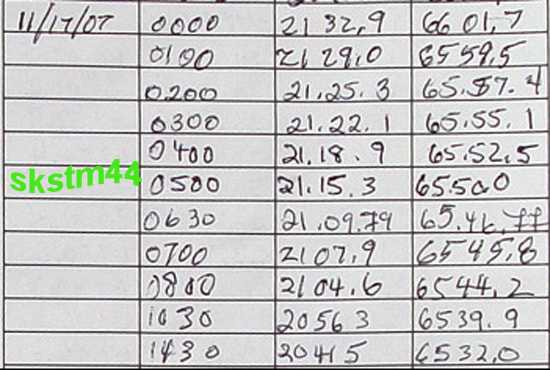 11/17/07 0000 21 32,9 66 01,7
0100 21 29,0 6559,5
0200 21.25.3 65.57.4
0300 21.22.1 65.55.1
0400 21.18.9 65.52,5
skstm44 0500 21.15.3 65.50.0
0630 21.09.79
0700 2107,9 6545,8
0800 2104.6 6544,2
1030 20563 6539.9
1430 20415 6532,0